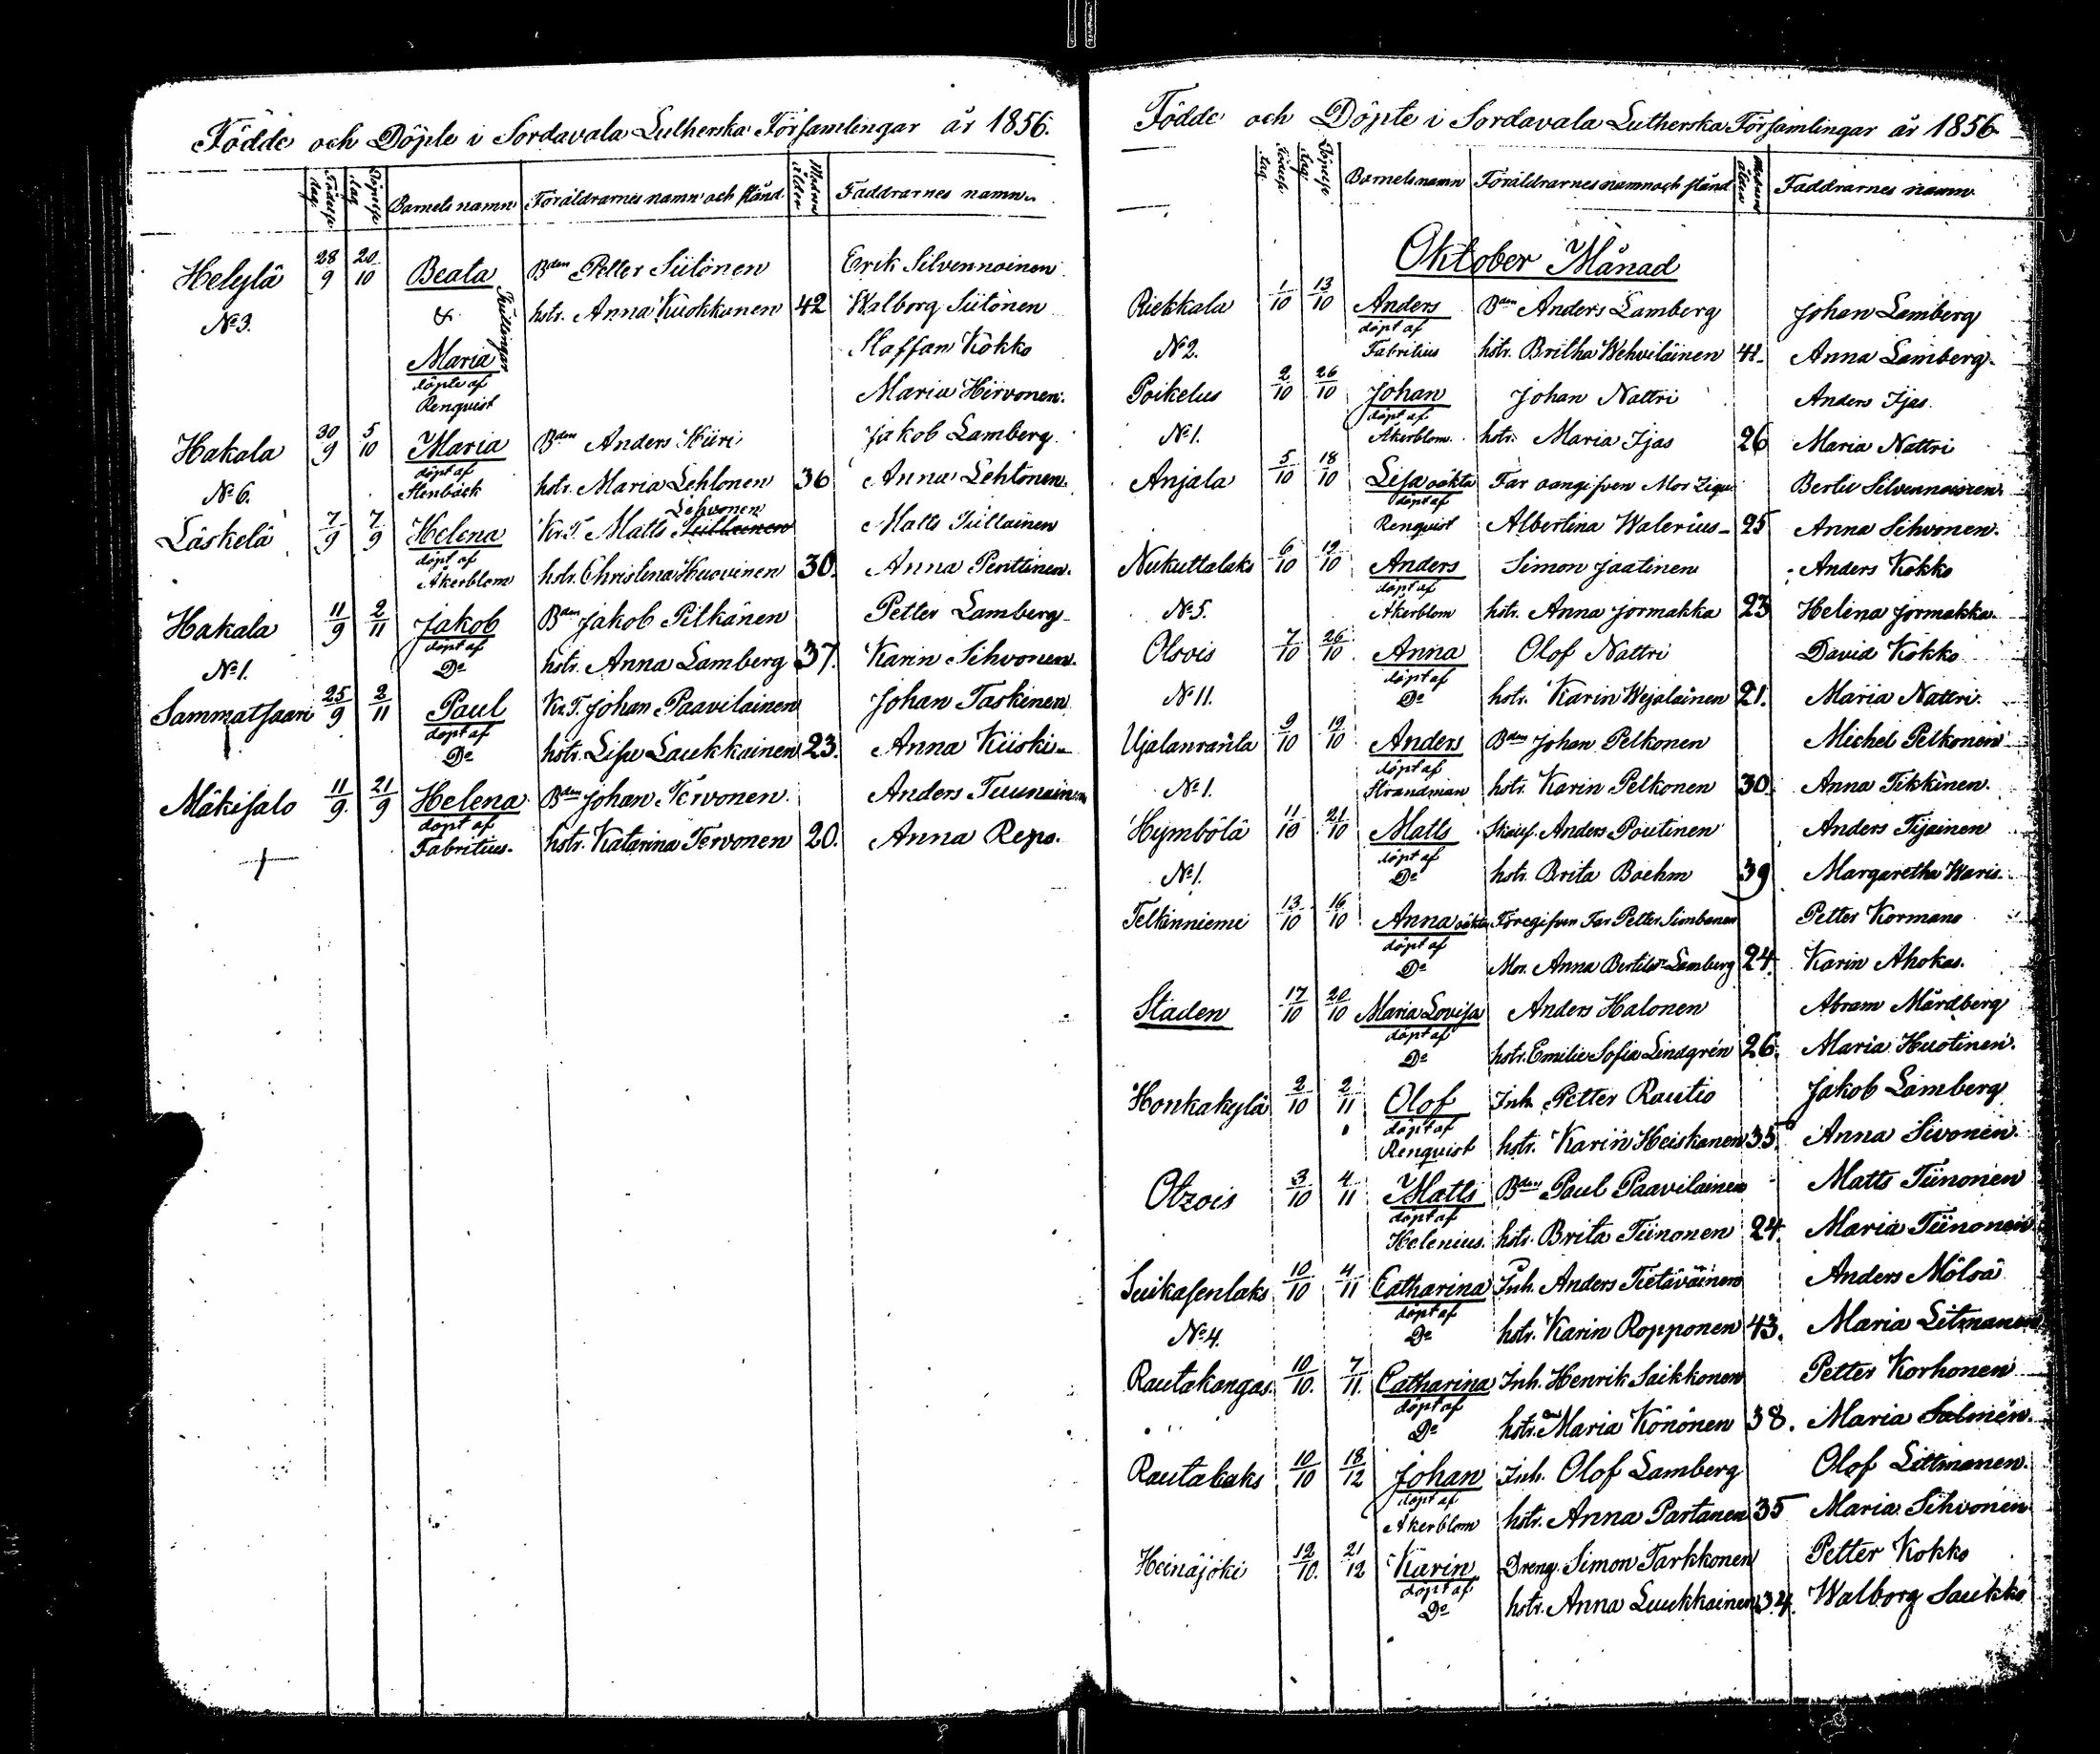 Födde och Döpte i Sordavala Lutherska Församlingar år 1856.
Födelse dag Döpelse dag Barnets namn Föräldrarnes namn och stånd Modrens ålder Faddrarnes namn
Helylä 28/9 20/10 Beata Bden Petter Siitonen Erik Silvennoinen
No 3. & Tvillingar hstr. Anna Kuokkanen 42 Walborg Siitonen
Maria Staffan Kokko
döpte af
Renquist Maria Hirvonen.
Hakala 30/9 5/10 Maria Bden Anders Kiiri Jakob Lamberg
No 6. döpt af Stenbäck hstr. Maria Lehtonen 36 Anna Lehtonen.
Sihvonen
Läskelä 7/9 7/9 Helena Kr.T. Matts Tiillainen Matts Tiillainen
döpt af Åkerblom hstr. Christena Huovinen 30. Anna Penttinen.
Hakala 11/9 2/11 Jakob Bden Jakob Pitkänen Petter Lamberg
No 1. döpt af Do hstr. Anna Lamberg 37. Karin Sihvonen.
Sammatsaari 25/9 2/11 Paul Kr.T. Johan Paavilainen Johan Taskinen
döpt af Do hstr. Lisa Laukkainen 23. Anna Kiiski
Mäkisalo 11/9 21/9 Helena Bden Johan Tervonen. Anders Tuunainen
döpt af Fabritius. hstr. Katarina Tervonen 20. Anna Repo.
Födde och Döpte i Sordavala Lutherska Församlingar år 1856.
Födelse dag Döpelse dag Barnets namn Föräldrarnes namn och stånd Modrens ålder Faddrarnes namn
Oktober Månad
Riekkala 1/10 13/10 Anders Bden Anders Lamberg Johan Lamberg
No 2. döpt af Fabritius hstr. Britha Wehviläinen 41. Anna Lamberg.
Poikelus 2/10 26/10 Johan Johan Nattri Anders Ijas
No 1. döpt af Åkerblom. hstr. Maria Ijas 26 Maria Nattri
Anjala 5/10 18/10 Lisa oäkta Far oangifven Mor Pigu Bertil Silvennoinen
döpt af Renquist Albertina Walerius 25 Anna Sihvonen.
Nukuttalaks 6/10 19/10 Anders Simon Jaatinen Anders Kokko
No 5. döpt af Åkerblom hstr. Anna Jormakka 23 Helena Jormakka.
Olovis 7/10 26/10 Anna Olof Nattri David Kokko
No 11. döpt af Do hstr. Karin Wejalainen 21. Maria Nattri.
Ujalanranta 9/10 19/10 Anders Bden Johan Pelkonen Michel Pelkonen
No 1. döpt af Strandman hstr. Karin Pelkonen 30. Anna Tikkinen.
Hymbölä 11/10 21/10 Matts Skräd. Anders Poutinen Anders Tijainen
No 1. döpt af Do hstr. Brita Boehm 39 Margaretha Waris.
Telkinniemi 13/10 16/10 Anna oäkta Föregifven Far Petter Simbanen Petter Kormano
döpt af Do Mor. Anna Bertilsdr Lamberg 24. Karin Ahokas.
Staden 17/10 20/10 Maria Lovisa Anders Halonen Abram Mårdberg
döpt af Do hstr. Emilie Sofia Lindgrén 26. Maria Huotinen.
Honkakylä 2/10 2/11 Olof Inh. Petter Rautio Jakob Lamberg
döpt af Renquist hstr. Karin Heiskanen 35. Anna Sivonen.
Otzois 3/10 4/11 Matts Bden Paul Paavilainen Matts Tiinonen
döpt af Helenius. hstr. Brita Tiinonen 24. Maria Tiinonen
Suikasenlaks 10/10 4/11 Catharina Inh. Anders Tietäväinen Anders Mölsä
No 4. döpt af Do hstr. Karin Ropponen 43. Maria Litmanen
Rautakangas 10/10. 7/11. Catharina Inh. Henrik Saikkonen Petter Korhonen
döpt af Do hstr. Maria Könönen 38. Maria Salmén.
Rautalaks 10/10 18/12 Johan Inh. Olof Lamberg Olof Littmanen.
döpt af Åkerblom hstr. Anna Partanen 35 Maria Sihvonen
Heinäjoki 12/10. 21/12 Karin Dreng. Simon Tarkkonen Petter Kokko
döpt af Do hstr. Anna Luukkainen 34. Walborg Saukko